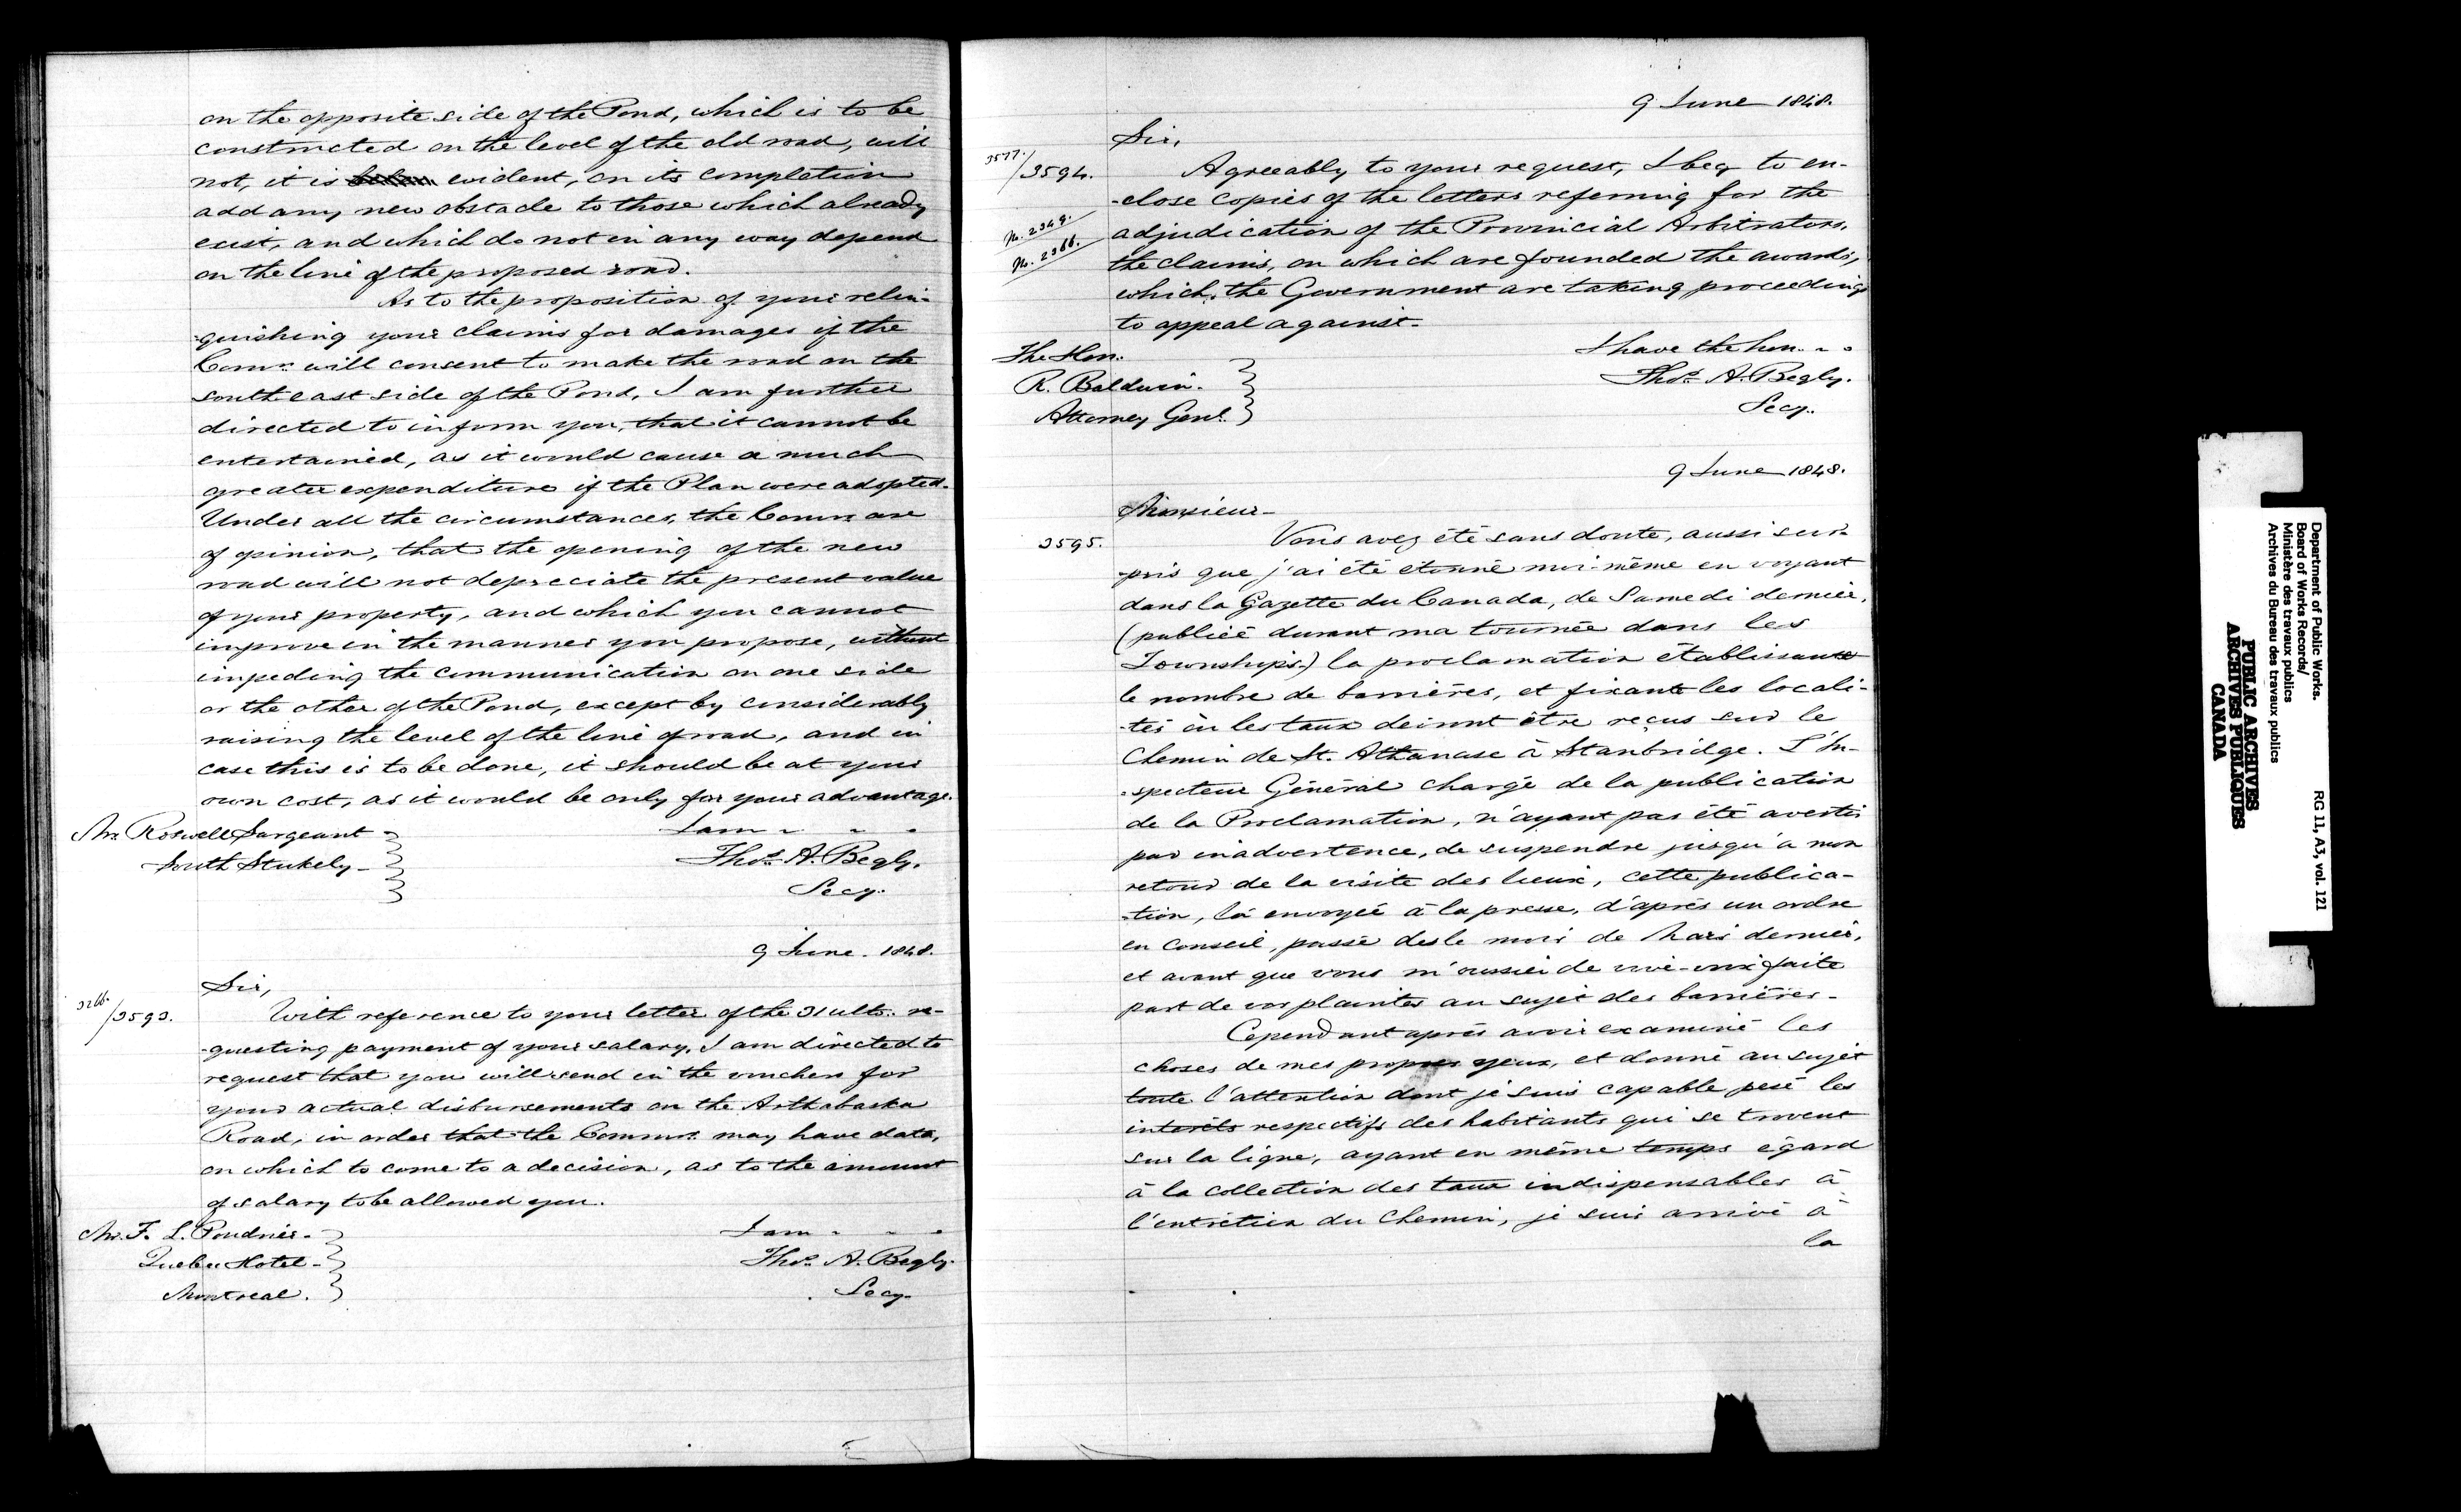 on the opposite side of the Pond, which is to be
constructed on the level of the old road, will
not, it is evident, on its completion
add any new obstacle to those which already
exist, and which do not in any way depend
on the line of the proposed road.
As to the proposition of your relin-
-quishing your claims for damages if the
Comrs. will consent to make the road on the
south east side of the Pond, I am further
directed to inform you, that it cannot be
entertained, as it would cause a much
greater expenditure if the Plan were adopted.
Under all the circumstances, the Comrs are
of opinion, that the opening of the new
road will not depreciate the present value
of your property, and which you cannot
improve in the manner you propose, without
impeding the communication on one side
or the other of the Pond, except by considerably
raising the level of the line of road, and in
case this is to be done, it should be at your
own cost, as it would be only for your advantage.
Mr. Roswell Sargeant
South Stukely
I am
Thos. A. Begly.
Secy.
9 June. 1848.
Sir,
3266./3593.
With reference to your letter of the 31 ulto. re-
-questing payment of your salary, I am directed to
request that you will send in the vouchers for
your actual disbursements on the Arthabaska
Road, in order that the Commrs. may have data,
on which to come to a decision, as to the amount
of salary to be allowed you.
Mr. F. L. Poudrier.
Quebec Hotel
Montreal.
I am
Thos. A. Begly.
Secy.
9 June 1848.
Sir,
3577./3594.
No. 2349.
No. 2366.
Agreeably to your request, I beg to en-
-close copies of the letters referring for the
adjudication of the Provincial Arbitrators,
the claims, on which are founded the awards,
which, the Government are taking proceedings
to appeal against.
The Hon.
R. Baldwin.
Attorney Genl.
I have the hon.
Thos. A. Begly.
Secy.
9 June 1848.
Monsieur
3595.
Vous avez été sans doute, aussi sur-
-pris que j'ai été etonné moi-même en voyant
dans la Gazette du Canada, de Samedi dernier,
(publiée durant ma tournée dans les
Townships) la proclamation établissant
le nombre de barrières, et fixant les locali-
-tés où les taux doivent être reçus sur le
Chemin de St. Athanase à Stanbridge. L'In-
-specteur Général chargé de la publication
de la Proclamation, n'ayant pas été averti
par inadvertence, de suspendre jusqu'à mon
retour de la visite des lieux, cette publica-
-tion, l'a envoyée à la presse, d'après un ordre
en Conseil, passé des le mois de Mars dernier,
et avant que vous m'eussiez de vive-voix faite
part de vos plaintes au sujet des barrières.
Cependant après avoir examiné les
choses de mes propres yeux, et donné au sujet
toute l'attention dont je suis capable pesé les
interêts respectifs des habitants qui se trovent
sur la ligne, ayant en même temps égard
à la collection des taux indispensables à
l'entretien du chemin, je suis arrivé à
la
Department of Public Works.
Board of Works Records/
Ministère des travaux publics
Archives du Bureau des travaux publics
RG 11, A3, vol. 121
PUBLIC ARCHIVES
ARCHIVES PUBLIQUES
CANADA